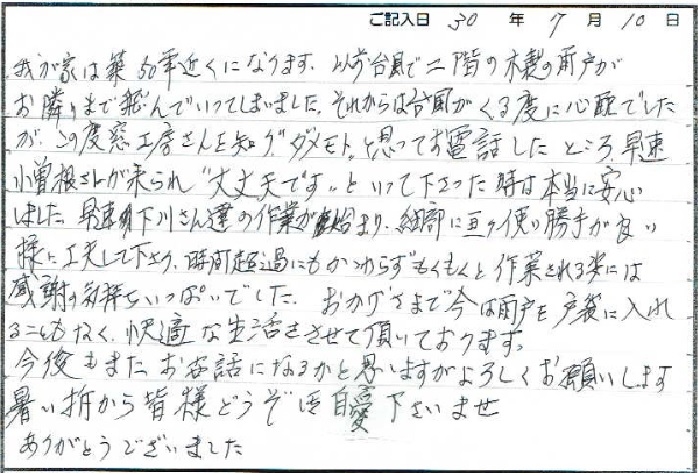 ご記入日 30 年 7 月 10 日
我が家は築50年近くになります。以前台風で二階の木製の雨戸が
お隣りまで飛んでいってしまいました。それからは台風がくる度に心配でした
が、この度窓工房さんを知り、"ダメモト"と思ってお電話したところ、早速
小曽根さんが来られ"大丈夫です"といって下さった時は本当に安心
しました。早速 下川さん達の作業が始まり、細部に亘り使い勝手が良い
様に工夫して下さり、時間超過にもかかわらずもくもくと作業される姿には
感謝の気持ちいっぱいでした。おかげさまで今は雨戸を戸袋に入れ
ることもなく、快適な生活をさせて頂いております。
今後もまたお世話になるかと思いますがよろしくお願いします
暑い折から皆様どうぞご自愛下さいませ
ありがとうございました